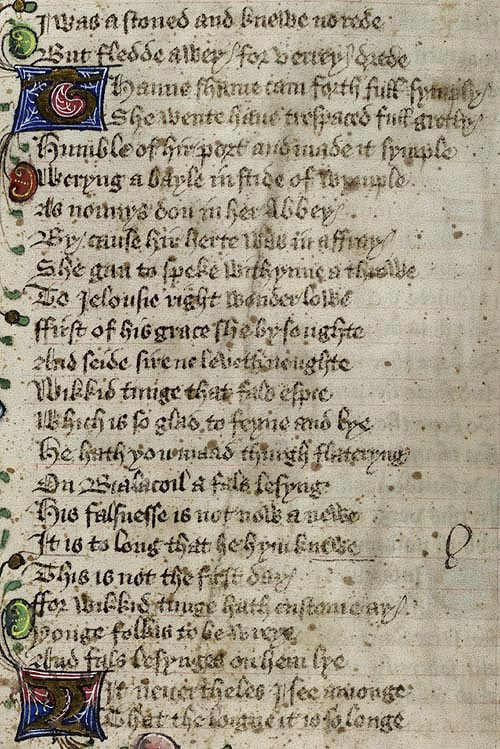 I was a stoned and knewe no rede
But fledde awey / for verrey drede
Thanne shame cam forth full symply
She wente haue trespaced full gretly
Humble of hir port and made it symple
Weryng a vayle in stide of wymple
As nonnys don in her Abbey
By cause hir herte was in affray
She gan to speke withynne a throwe
To Ielousie right wonder lowe
ffirst of his grace she bysoughte
And seide sire ne leveth noughte
Wikkid tunge that fals espie
Which is so glad to feyne and lye
He hath you maad thurgh flateryng
On Bialacoil a fals lesyng
His falsnesse is not now a newe
It is to long that he hym knewe
This is not the first day
ffor wikkid tunge hath custome ay
Yonge folkis to bewreye
And fals lesynges on hem lye
Yit neuertheles I see amonge
That the loigne it is so longe